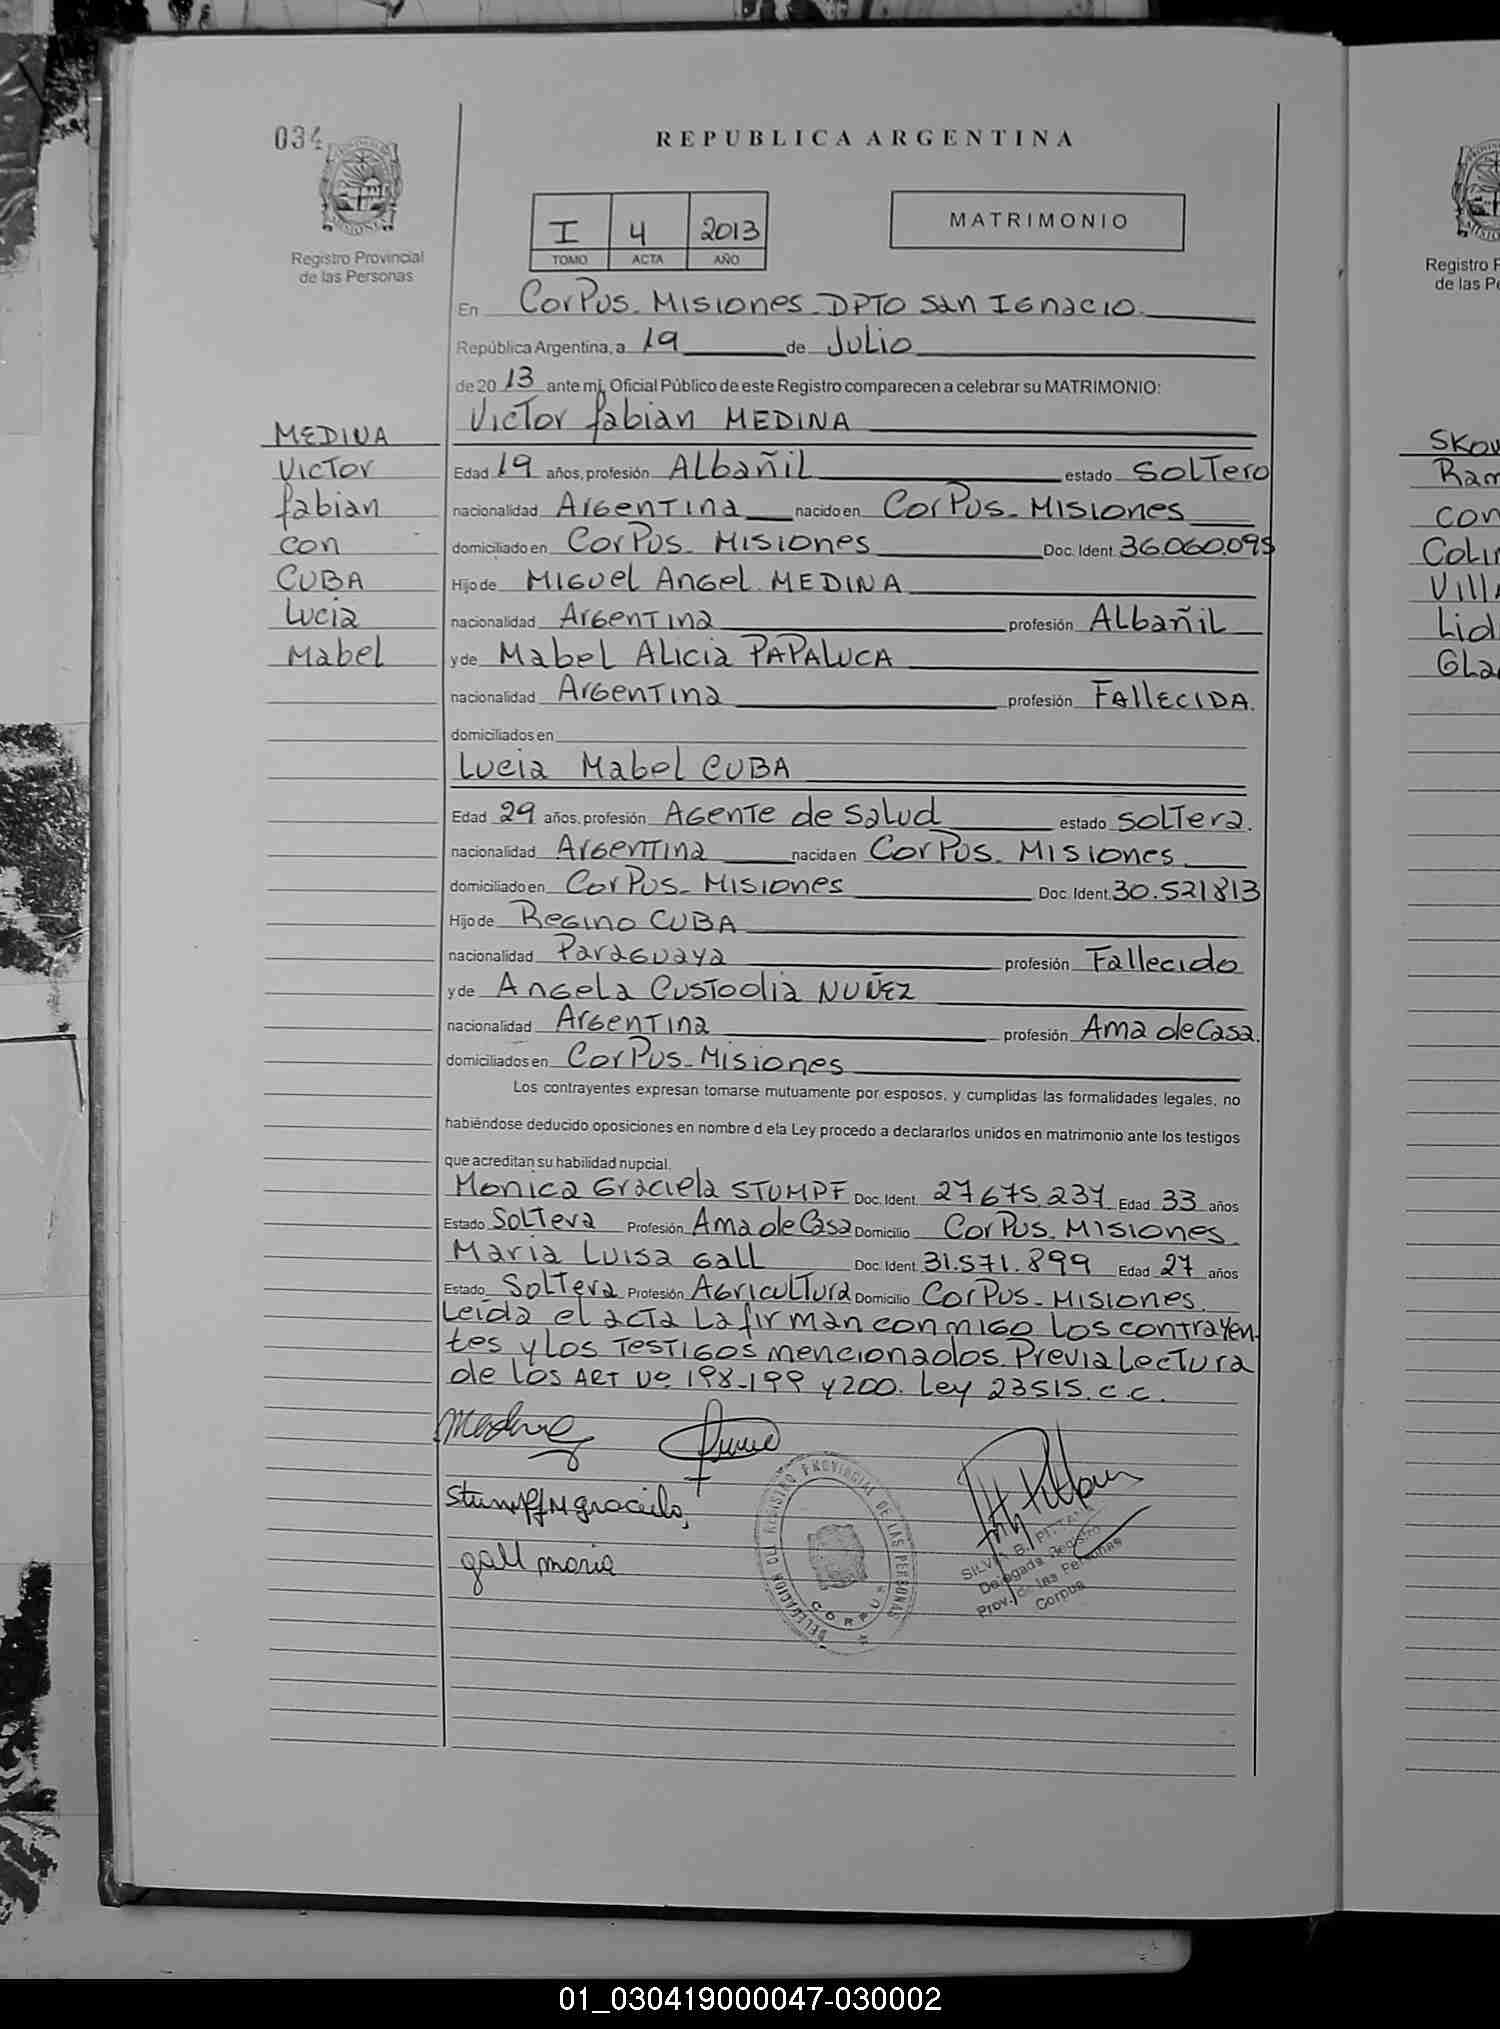 034
REPUBLICA ARGENTINA
Registro Provincial
de las Personas
I 4 2013
TOMO ACTA AÑO
MATRIMONIO
En Corpus - Misiones - DPTO San Ignacio
República Argentina, a 19 de Julio
de 20 13 ante mi, Oficial Público de este Registro comparecen a celebrar su MATRIMONIO:
MEDINA
Victor
fabian
con
CUBA
Lucia
Mabel
Victor fabian MEDINA
Edad 19 años, profesión Albañil estado Soltero
nacionalidad Argentina nacido en Corpus - Misiones
domiciliado en Corpus - Misiones Doc. Ident. 36.060.095
Hijo de Miguel Angel MEDINA
nacionalidad Argentina profesión Albañil
y de Mabel Alicia PAPALUCA
nacionalidad Argentina profesión FALLECIDA.
domiciliados en
Lucia Mabel CUBA
Edad 29 años, profesión Agente de Salud estado soltera.
nacionalidad Argentina nacida en Corpus - Misiones
domiciliado en Corpus - Misiones Doc. Ident. 30.521813
Hijo de Regino CUBA
nacionalidad Paraguaya profesión Fallecido
y de Angela Custodia NUÑEZ
nacionalidad Argentina profesión Ama de Casa.
domiciliados en Corpus - Misiones
Los contrayentes expresan tomarse mutuamente por esposos, y cumplidas las formalidades legales, no
habiéndose deducido oposiciones en nombre d ela Ley procedo a declararlos unidos en matrimonio ante los testigos
que acreditan su habilidad nupcial.
Monica Graciela STUMPF Doc. Ident. 27.675.237 Edad 33 años
Estado Soltera Profesión Ama de Casa Domicilio Corpus - Misiones
Maria Luisa Gall Doc. Ident. 31.571.899 Edad 27 años
Estado Soltera Profesión Agricultura Domicilio Corpus - Misiones.
Leida el acta la firman conmigo los contrayen-
tes y los Testigos mencionados. Previa Lectura
de los ART Nº 198-199 y 200. Ley 23515. c.c.
Stumpf M graciela,
gall maria
DELEGACION DEL REGISTRO PROVINCIAL DE LAS PERSONAS
CORPUS
SILVIA B.
Delegada Registro
Prov. de las Personas
Corpus
Registro
de las
Ram
con
01_030419000047-030002